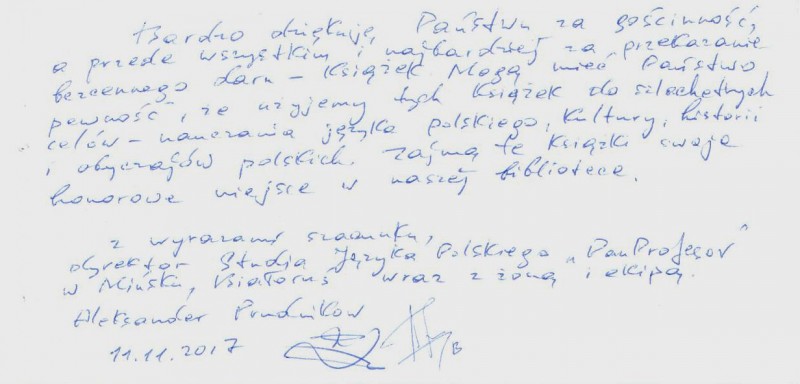 Bardzo dziękuję Państwu za gościnność,
a przede wszystkim i najbardziej za przekazanie
bezcennego daru – książek. Mogą mieć Państwo
pewność, że użyjemy tych książek do szlachetnych
celów – nauczania języka polskiego, kultury, historii
i obyczajów polskich. Zajmą te książki swoje
honorowe miejsce w naszej bibliotece.
Z wyrazami szacunku,
dyrektor Studia Języka Polskiego „PanProfesor"
w Mińsku, Białoruś wraz z żoną i ekipą.
Aleksander Prudnikow
11.11.2017